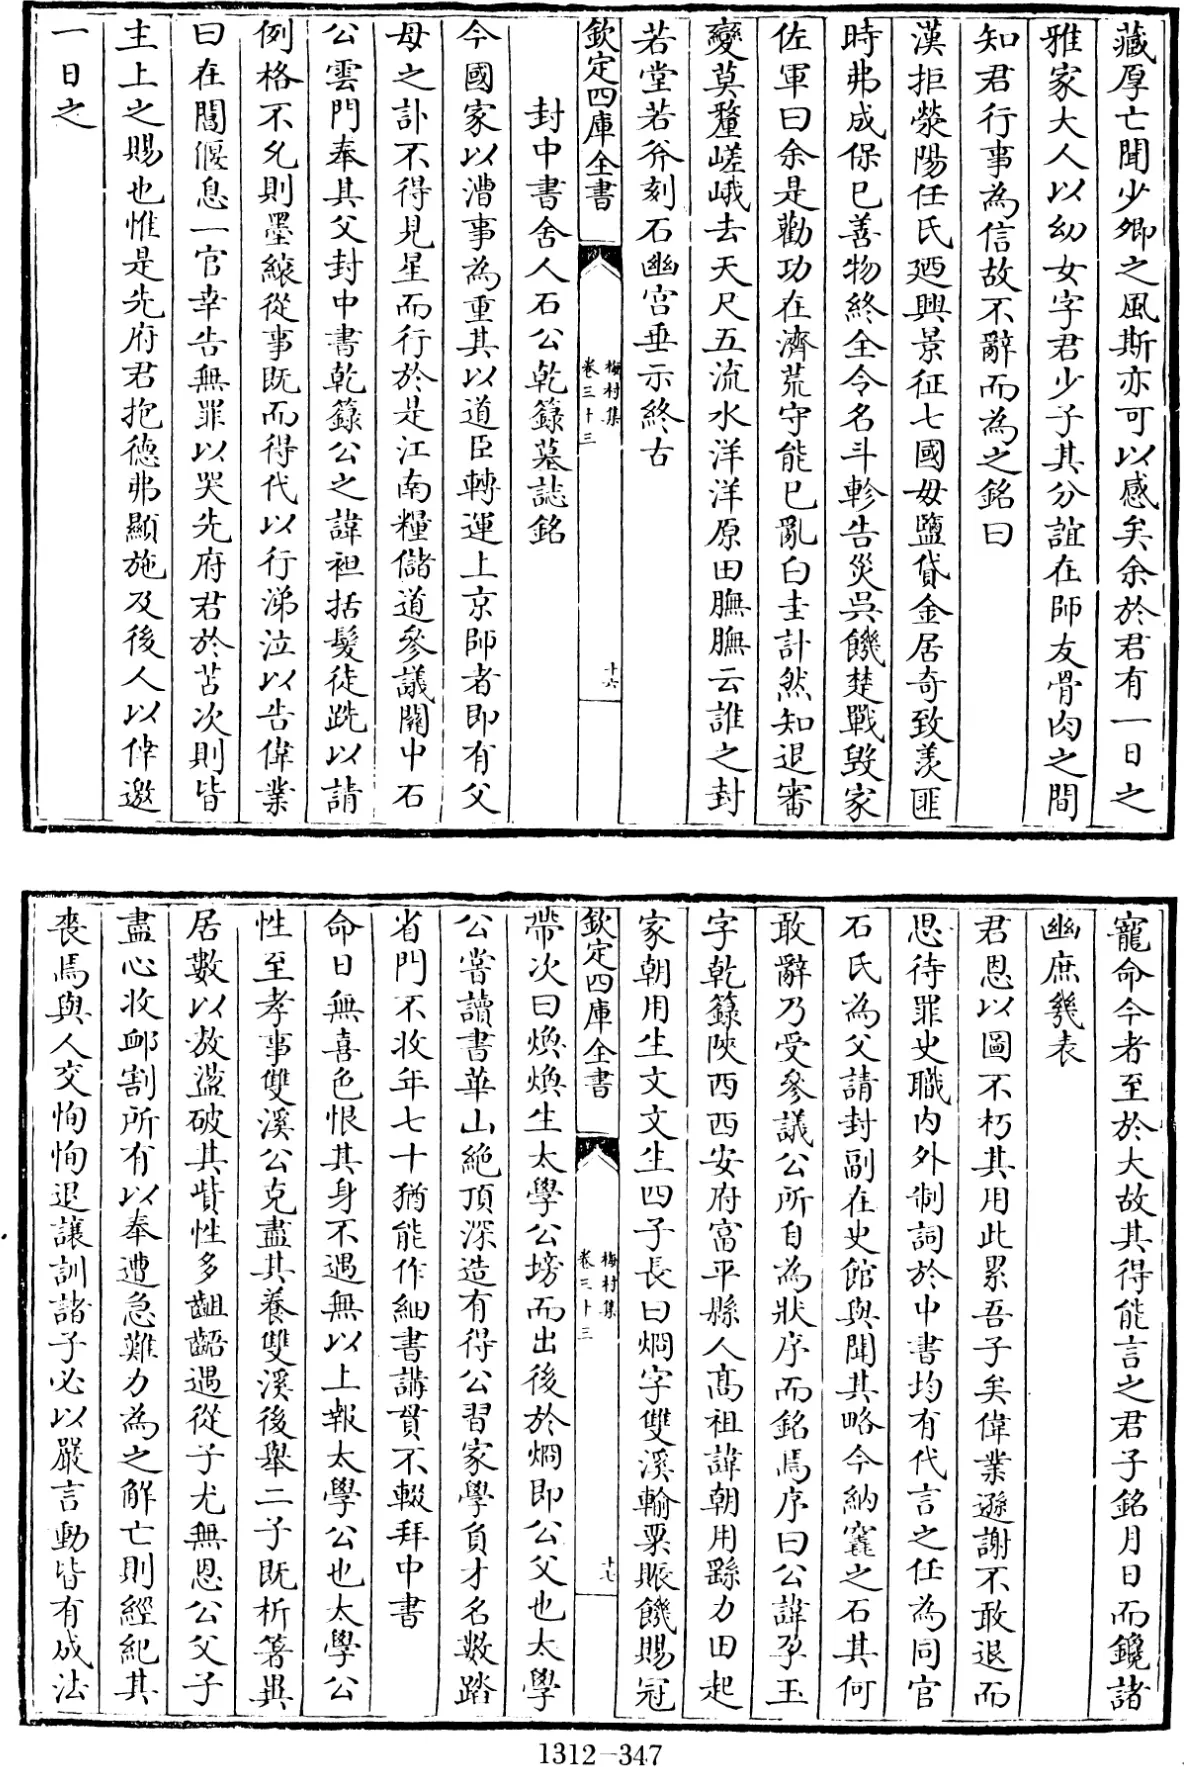 藏厚亡聞少卿之風斯亦可以感矣余於君有一日之
雅家大人以幼女字君少子其分誼在師友骨肉之間
知君行事為信故不辭而為之銘曰
漢拒滎陽任氏廼興景征七國毋鹽貸金居奇致羨匪
時弗成保已善物終全令名斗軫告災吳饑楚戰毀家
佐軍曰余是勸功在濟荒守能已亂白圭計然知退審
變莫釐嵯峨去天尺五流水洋洋原田膴膴云誰之封
若堂若斧刻石幽宫垂示終古
欽定四庫全書
梅村集
卷三十三
十六
封中書舍人石公乾籙墓誌銘
今國家以漕事為重其以道臣轉運上京師者即有父
母之訃不得見星而行於是江南糧儲道參議關中石
公雲門奉其父封中書乾籙公之諱袒括髮徒跣以請
例格不允則墨縗從事既而得代以行涕泣以告偉業
曰在閶偃息一官幸告無罪以哭先府君於苫次則皆
主上之賜也惟是先府君抱德弗顯施及後人以倖邀
一日之
寵命今者至於大故其得能言之君子銘月日而鑱諸
幽庶幾表
君恩以圖不朽其用此累吾子矣偉業遜謝不敢退而
思待罪史職内外制詞於中書均有代言之任為同官
石氏為父請封副在史館與聞其略今納窆之石其何
敢辭乃受參議公所自為狀序而銘焉序曰公諱孕玉
字乾籙陜西西安府富平縣人髙祖諱朝用繇力田起
家朝用生文文生四子長曰烱字雙溪輸粟賑饑賜冠
欽定四庫全書
梅村集
卷三十三
十七
帶次曰煥煥生太學公塝而出後於烱即公父也太學
公嘗讀書華山絶頂深造有得公習家學負才名數踏
省門不收年七十猶能作細書講貫不輟拜中書
命日無喜色恨其身不遇無以上報太學公也太學公
性至孝事雙溪公克盡其養雙溪後舉二子既析箸異
居數以放盪破其貲性多齟齬遇從子尤無恩公父子
盡心收卹割所有以奉遭急難力為之解亡則經紀其
喪焉與人交恂恂退讓訓諸子必以嚴言動皆有成法
1312-347